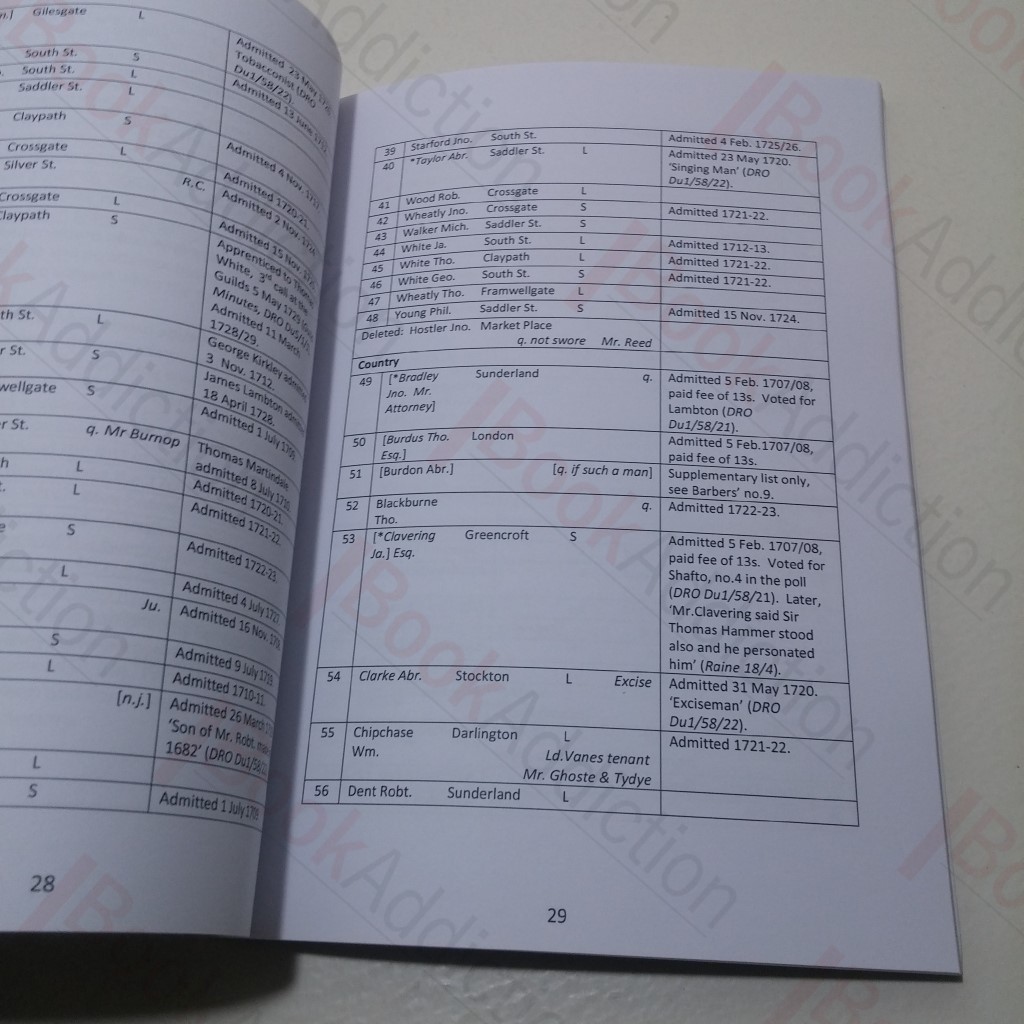 n.] Gilesgate L
South St. S Admitted 23 May
South St. L Tobacconist (DRO
Saddler St. L Du1/58/22).
Admitted 13 June
Claypath S
Crossgate L Admitted 4 Nov.
Silver St. R.C. Admitted 1720-21.
Crossgate L Admitted 2 Nov.
Claypath S Admitted 15 Nov.
Apprenticed to Thomas
White, 3rd call at the
Guilds 5 May 1729
Minutes, DRO
Admitted 11 March
1728/29.
th St. L George Kirkley admitted
3 Nov. 1712.
r St. S James Lambton
18 April 1728.
wellgate S Admitted 1 July
r St. q. Mr Burnop Thomas Martindale
admitted 8 July
h L Admitted 1720-21.
L Admitted 1721-22.
S Admitted 1722-23.
L Admitted 4 July
Ju. Admitted 16 Nov.
S Admitted 9 July
L Admitted 1710-11.
[n.j.] Admitted 26 March
'Son of Mr. Robt.
1682' (DRO Du1/58/22
L
S Admitted 1 July 1709
28
39 Starford Jno. South St. Admitted 4 Feb. 1725/26.
40 *Taylor Abr. Saddler St. L Admitted 23 May 1720.
'Singing Man' (DRO
Du1/58/22).
41 Wood Rob. Crossgate L
42 Wheatly Jno. Crossgate S Admitted 1721-22.
43 Walker Mich. Saddler St. S
44 White Ja. South St. L Admitted 1712-13.
45 White Tho. Claypath L Admitted 1721-22.
46 White Geo. South St. S Admitted 1721-22.
47 Wheatly Tho. Framwellgate L
48 Young Phil. Saddler St. S Admitted 15 Nov. 1724.
Deleted: Hostler Jno. Market Place
q. not swore Mr. Reed
Country
49 [*Bradley Sunderland q. Admitted 5 Feb. 1707/08,
Jno. Mr. paid fee of 13s. Voted for
Attorney] Lambton (DRO
Du1/58/21).
50 [Burdus Tho. London Admitted 5 Feb.1707/08,
Esq.] paid fee of 13s.
51 [Burdon Abr.] [q. if such a man] Supplementary list only,
see Barbers' no.9.
52 Blackburne q. Admitted 1722-23.
Tho.
53 [*Clavering Greencroft S Admitted 5 Feb. 1707/08,
Ja.] Esq. paid fee of 13s. Voted for
Shafto, no.4 in the poll
(DRO Du1/58/21). Later,
'Mr.Clavering said Sir
Thomas Hammer stood
also and he personated
him' (Raine 18/4).
54 Clarke Abr. Stockton L Excise Admitted 31 May 1720.
'Exciseman' (DRO
Du1/58/22).
55 Chipchase Darlington L Admitted 1721-22.
Wm. Ld.Vanes tenant
Mr. Ghoste & Tydye
56 Dent Robt. Sunderland L
29